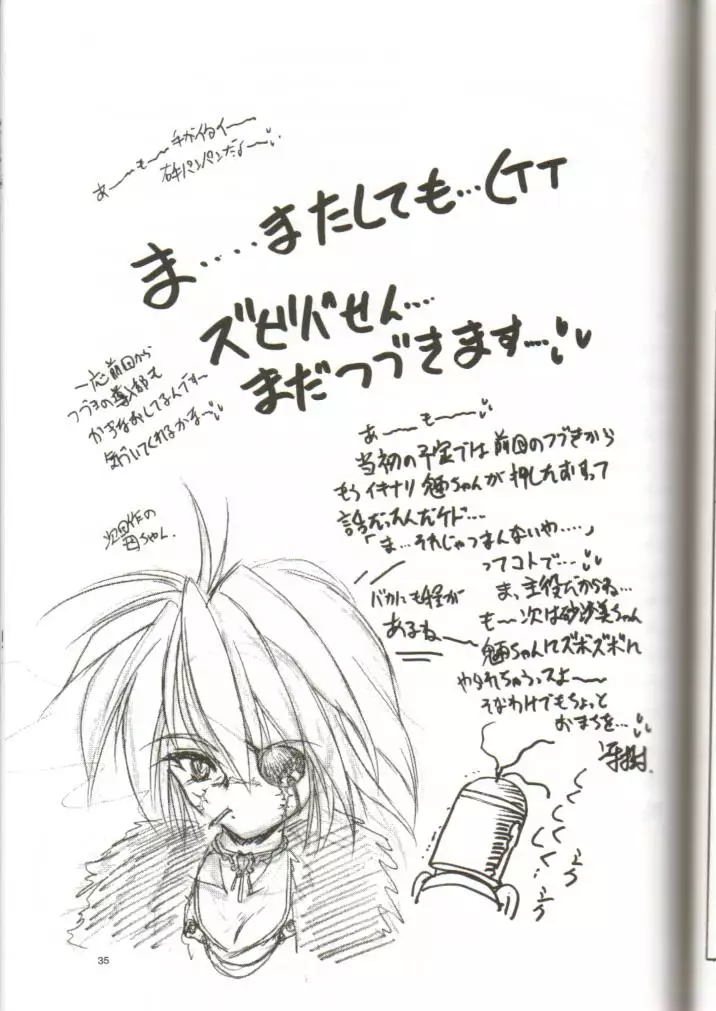 あ〜〜も〜〜手がイタイ〜〜
右手パンパンだよ〜〜
ま‥‥またしても…(TT
ズビバせん‥‥
まだつづきます…
一応前回から
つづきの導入部も
かきなおしてるんです〜
気づいてくれるかな〜
次回作の
あ〜〜も〜〜
当初の予定では前回のつづきから
もうイキナリ 魎ちゃんが押したおすって
話だったんだケド…
「ま…それじゃつまんないや‥‥」
ってコトで…
ま、主役だからね…
も〜〜次は砂沙美ちゃん
魎ちゃんにズボズボに
やられちゃうっスよ〜〜
そなわけでもちょっと
おまちを…
バカにも程が
あるね〜〜
35